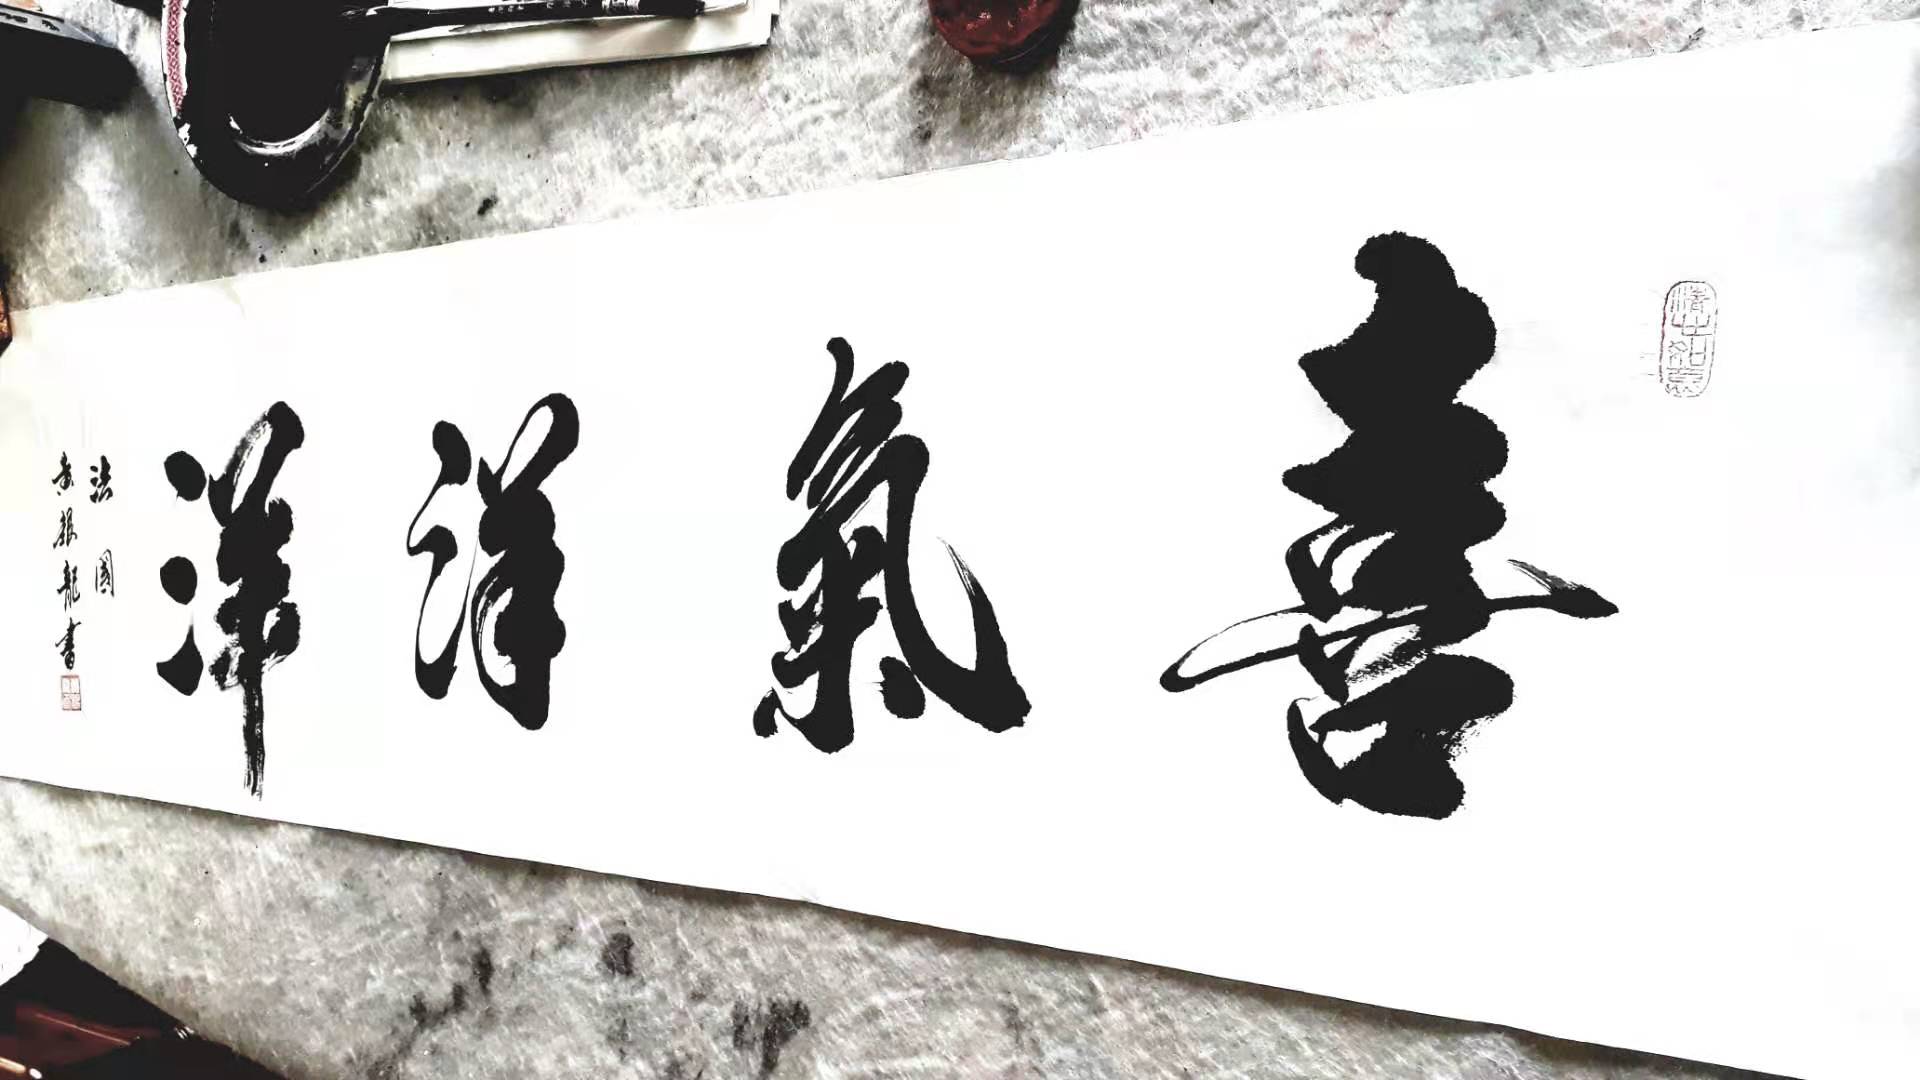 喜氣洋洋
法國
黄振龍書